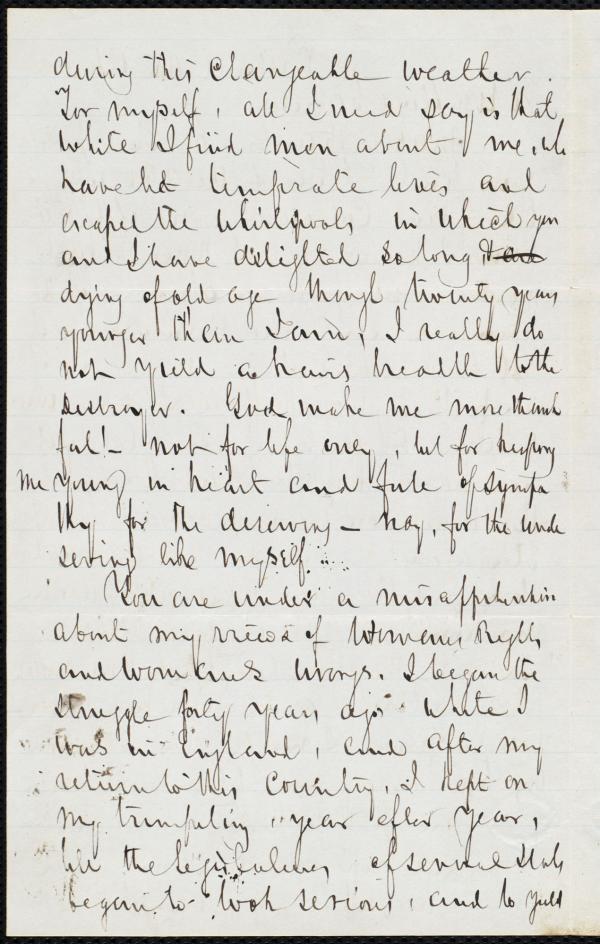 during this changeable weather.
For myself, all I need say is that,
while I find men about me, who
have led temperate lives and
escaped the whirlpools in which you
and I have delighted so long, & are
dying of old age though twenty years
younger than I am, I really do
not yield a hair's breadth to the
Destroyer. God make me more thank
ful! — not for life only, but for keeping
me young in heart and full of sympa
thy for the deserving — nay, for the unde
serving like myself.
You are under a misapprehension
about my views of Womans Rights
and womans wrongs. I began the
struggle forty years ago while I
was in England, and after my
return to this Country, I kept on
my trumpeting year after year,
till the legislatures of several States
began to look serious, and to yield